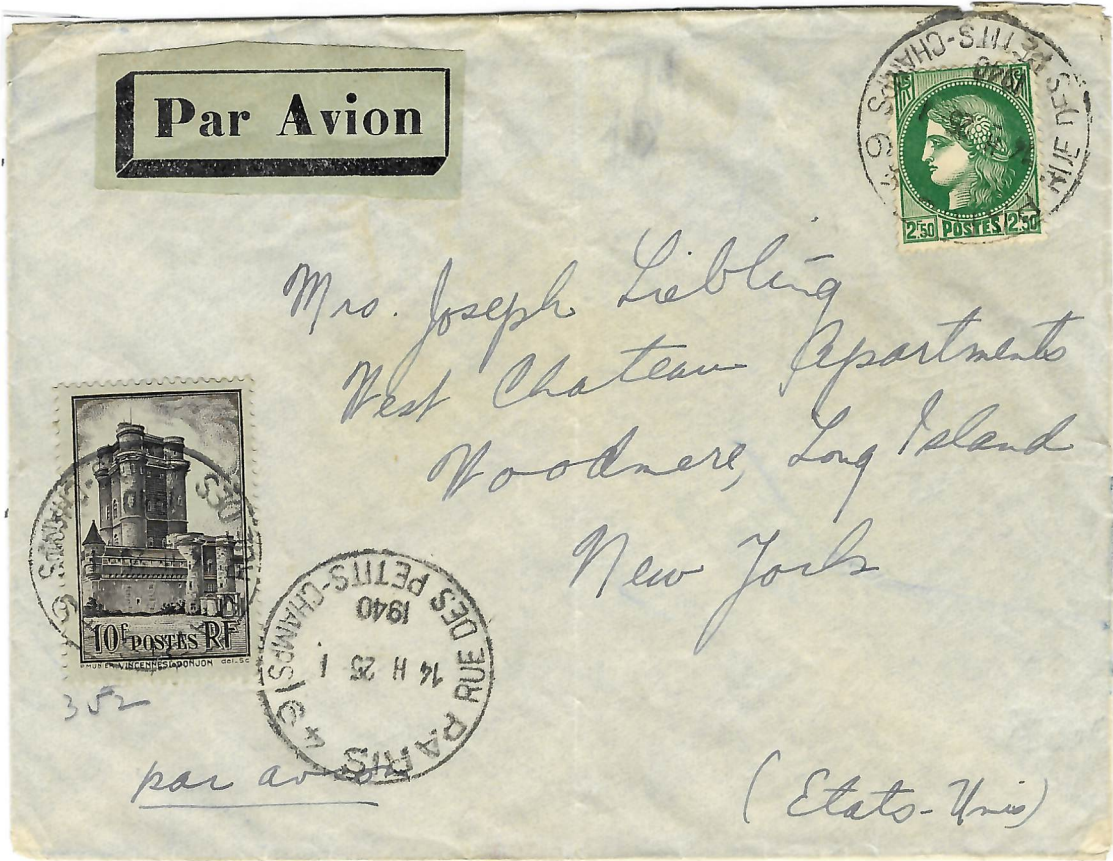 Par Avion
RUE DES PETITS-CHAMPS
1940
RF
2F50 POSTES 2F50
Mrs. Joseph Liebling
West Chateau Apartments
Woodmere, Long Island
New York
10f POSTES RF
VINCENNES LE DONJON
352
PARIS 49 RUE DES PETITS-CHAMPS
14 H 25
1940
par avion
(Etats-Unis)